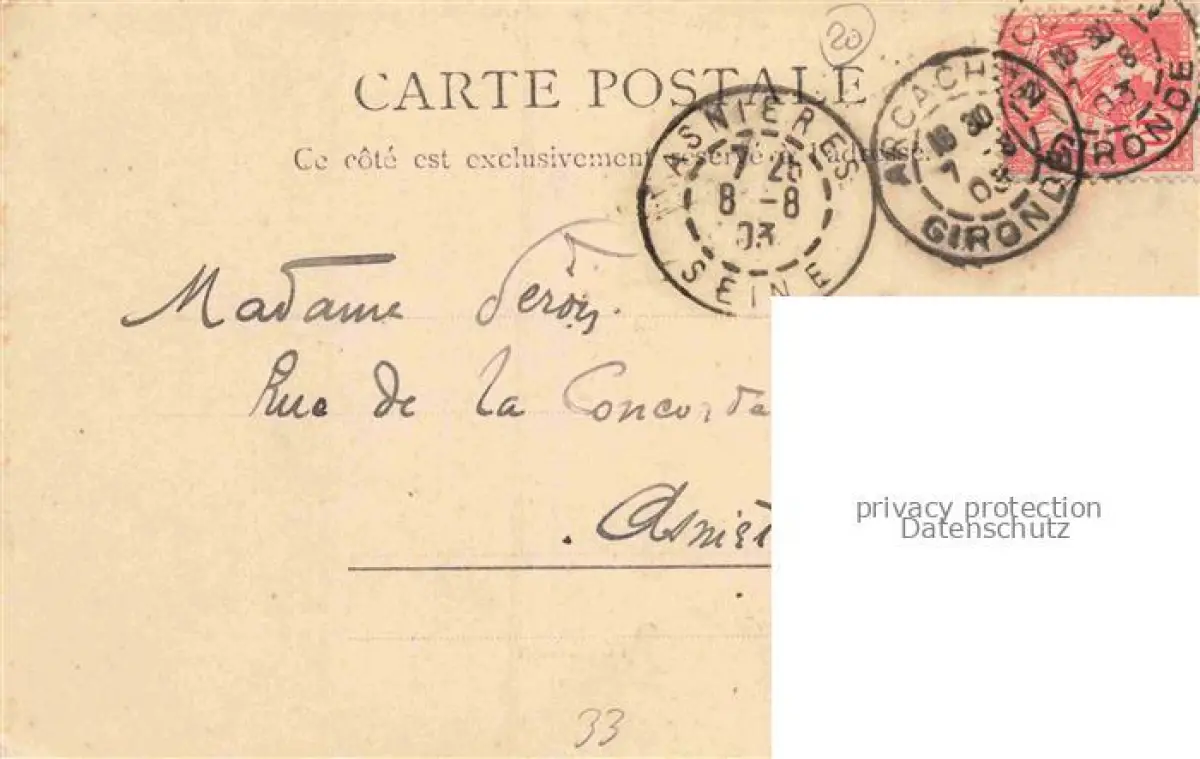 20
CARTE POSTALE
Ce côté est exclusivement réservé à l'adresse.
ASNIERES
7 25
8 -8
03
SEINE
ARCACHON
18 30
7 -8
03
GIRONDE
GIRONDE
Madame
Rue de la Concorde
Asniè
privacy protection
Datenschutz
33